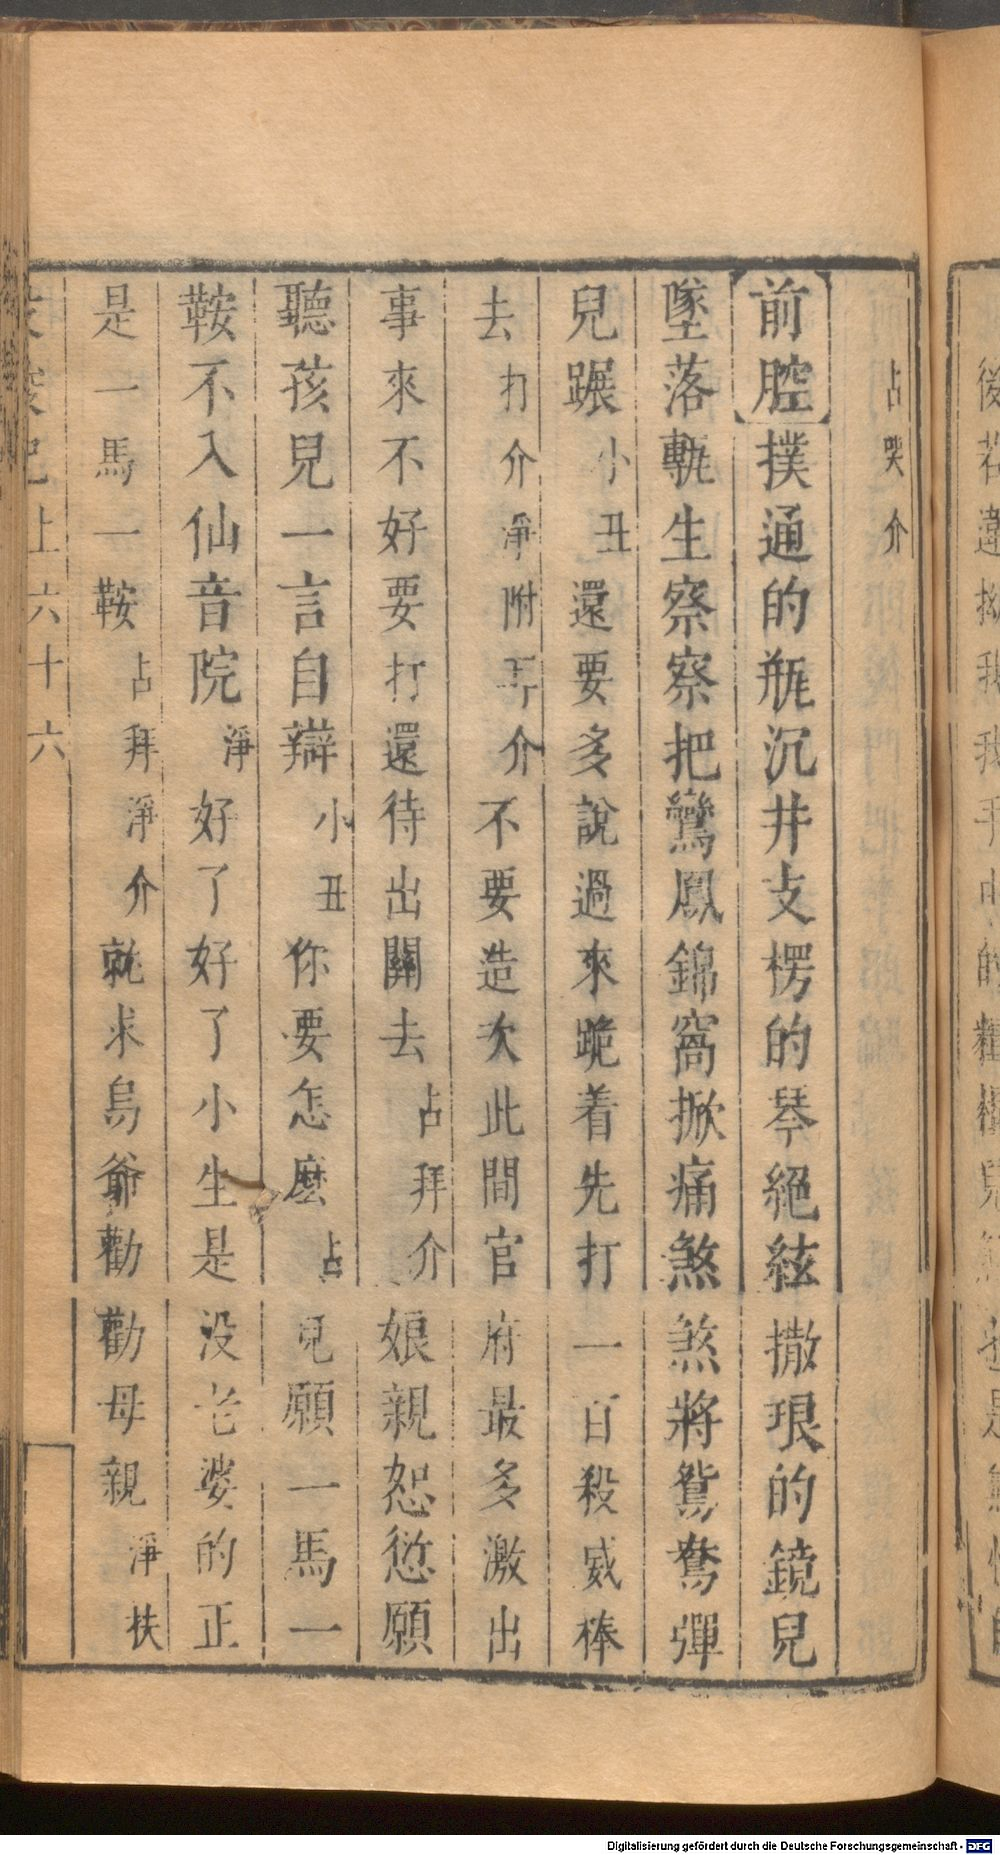 占哭介
前腔撲通的瓶沉井支楞的琴絕絃撒珢的鏡兒
墜落輒生察察把鸞鳳錦窩掀痛煞煞將鴛鴦彈
兒蹍小丑還要多說過來跪着先打一百殺威棒
去打介淨附耳介不要造次此間官府最多激出
事來不好要打還待出關去占拜介娘親恕愆願
聽孩兒一言自辯小丑你要怎麽占兒願一馬一
鞍不入仙音院淨好了好了小生是没老婆的正
是一馬一鞍占拜淨介就求烏爺勸勸母親淨扶
上六十六
Digitalisierung gefördert durch die Deutsche Forschungsgemeinschaft - DFG